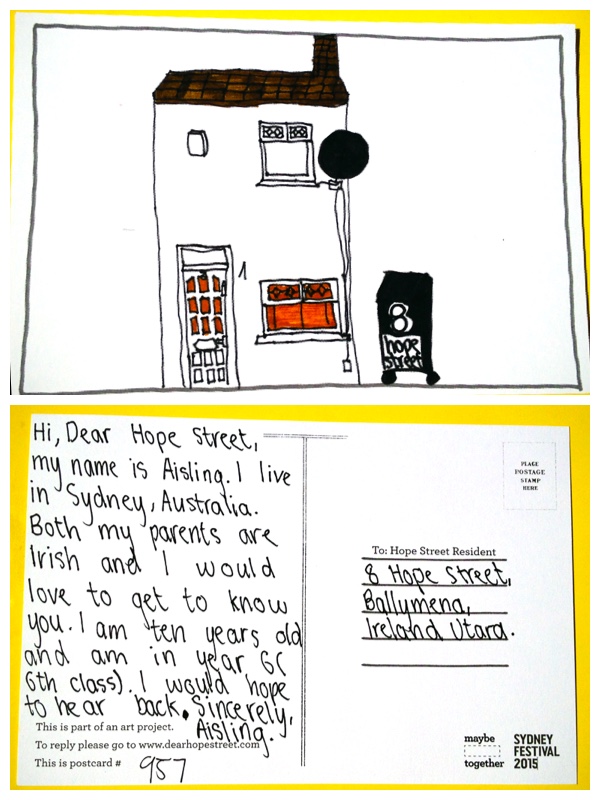 1
8
hope
street
Hi, Dear Hope street,
my name is Aisling. I live
in Sydney, Australia.
Both my parents are
Irish and I would
love to get to know
you. I am ten years old
and am in year 6(
6th class). I would hope
to hear back. Sincerely,
Aisling.
This is part of an art project.
To reply please go to www.dearhopestreet.com
This is postcard # 957
PLACE
POSTAGE
STAMP
HERE
To: Hope Street Resident
8 Hope street,
Ballymena,
Ireland Utara.
maybe
together
SYDNEY
FESTIVAL
2015